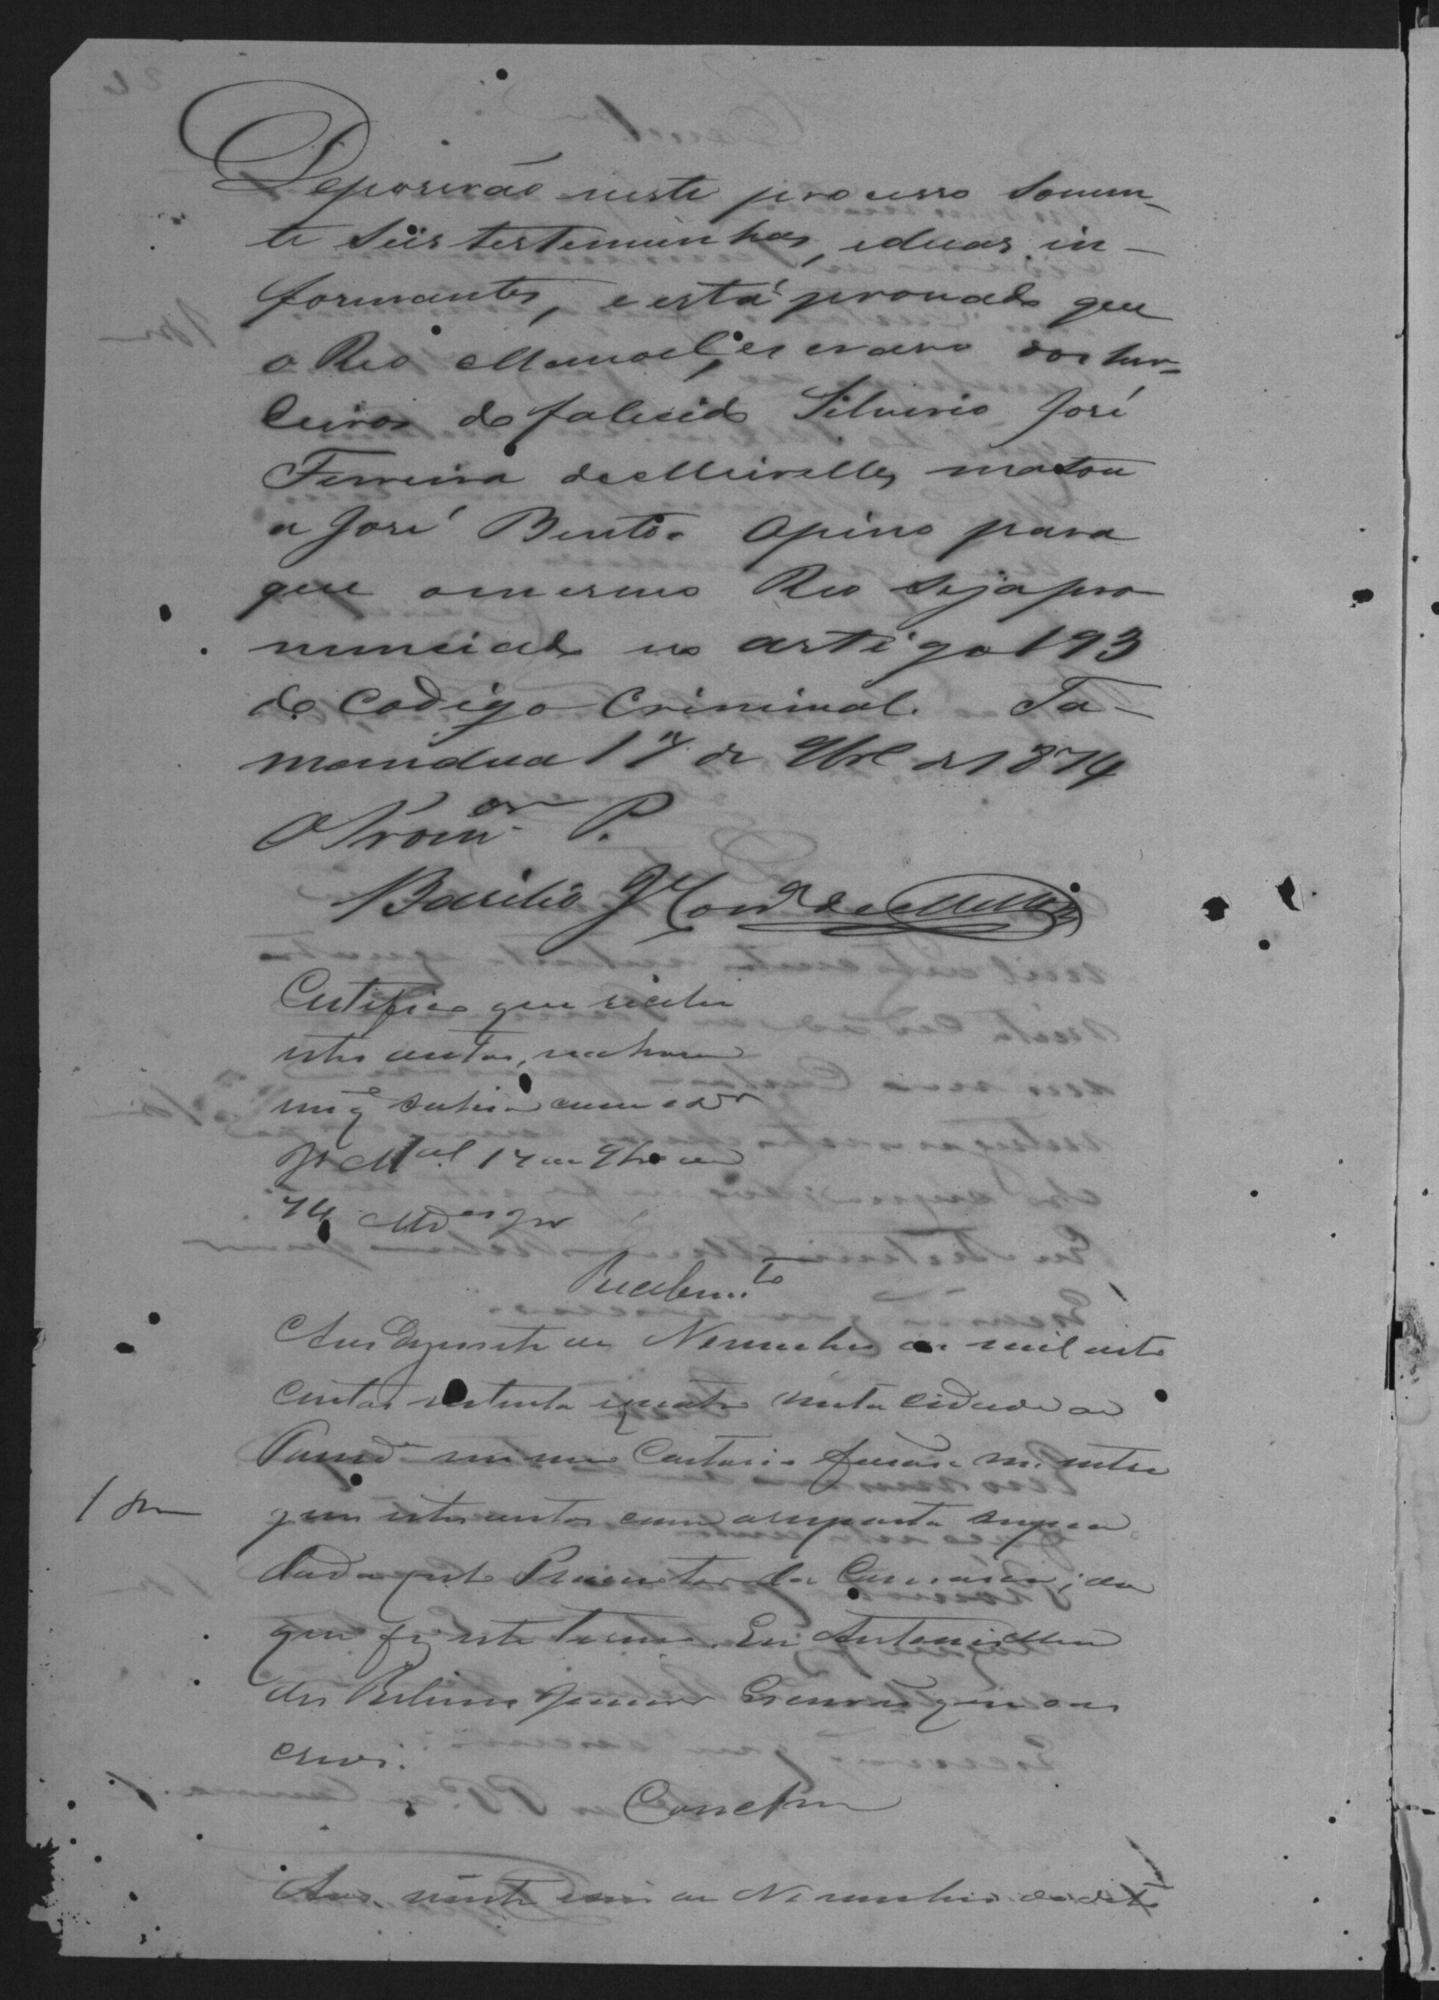 Deposerão neste processo somen-
te seis testemunhas, e duas in-
formantes, e está provado que
o Reo Manoel, escravo dos her-
deiros do falecido Silverio José
Ferreira de Meirelles, matou
a José Bento. Opino para
que o mesmo Reo seja pro
nunciado no artigo 193
do Codigo Criminal. Ta-
manduá 17 de 9bro de 1874
O Prom.or P.
Basilio de
Certifico que recebi
estes autos,
17 de 9bro de
74
Recebim.to
Aos dezesete de Novembro de mil oito
centos setenta e quatro nesta cidade de
Tamd.a em meu Cartorio forão me entre
gues estes autos com a resposta supra
dada pelo Promotor da Comarca; do
que fiz este termo. Eu Antonio
Junior Escrivão que o es
crevi.
Conclm
Aos vinte um de Novembro do dito